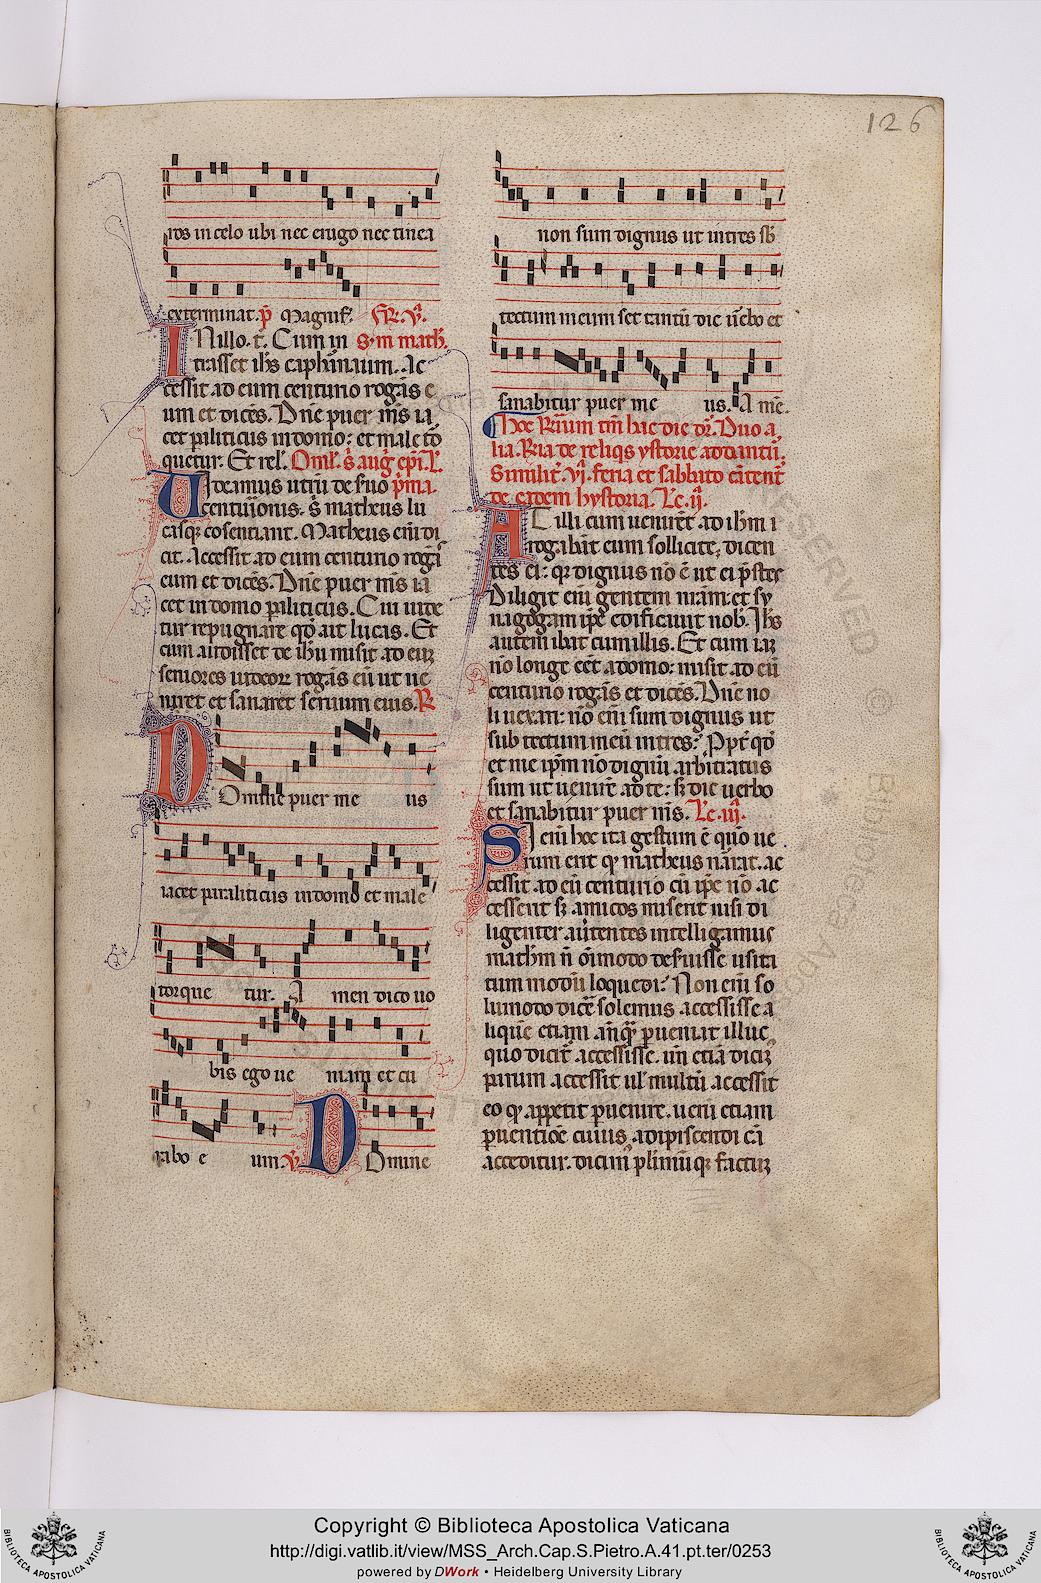 126
ros in celo ubi nec erugo nec tinea
exterminat. p̄ Magnif̄. FR. vj̄.
IN illo. t̄. Cum in s̄. m math̄.
trasset ih̄s capharnaum. Ac
cessit ad eum centurio rogās e
um et dicēs. Dn̄e puer m̄s ia
cet paliticus in domo: et male tō
quetur. Et rel̄. Oml̄. s̄. auḡ. ep̄i. L̄.
Videamus utrū de suo p̄ma.
centurionis. s̄ matheus lu
casq̄ cosentiant. Matheus eni di
cit. Accessit ad eum centurio rogās
eum et dicēs. Dn̄e puer m̄s ia
cet in domo paliticus. Cui uide
tur repugnare qd̄ ait lucas. Et
cum audisset de ih̄u misit ad eūz
seniores iudeorꝝ rogās eū ut ue
niret et sanaret seruum eius. R
Domine puer me us
iacet paraliticus in domo et male
torque tur. A men dico uo
bis ego ue niam et cu
rabo e um. V̄ Domine
non sum dignus ut intres sb̄
tectum meum set tantū dic uerbo et
sanabitur puer me us. A mē.
Hoc R̄ium tm̄ hac die dr̄. Duo a
lia. R̄ia de reliqs ystorie ad cantū.
Similit̄. vj. feria et sabbato cātent̄
de eadem hystoria. Lc̄. ij.
At illi cum uenirēt ad ih̄m i
rogabāt eum sollicite, dicen
tes ei: qr̄ dignus nō ē ut ei p̄stes
Diligit eni gentem nr̄am: et sy
nagogam ip̄e edificauit nob̄. Ih̄s
autem ibat cum illis. Et cum iaz
nō longe eēt a domo: misit ad eū
centurio rogās et dicēs. Dn̄e no
li uexari: nō eni sum dignus ut
sub tectum meū intres: Ppt̄ qd̄
et me ip̄m nō dignū arbitratus
sum ut uenirē ad te: s̄ dic uerbo
et sanabitur puer m̄s. Lc̄. iij.
Si eni hoc ita gestum ē quō ue
rum erit qd̄ matheus narrat. ac
cessit ad eū centurio cū ip̄e nō ac
cesserit s̄ amicos miserit nisi di
ligenter aūtentes intelligamus
math̄m n̄ oīmodo deseruisse usita
tum modū loquedi: Non eni so
lumodo dicē solemus accessisse a
liquē etiam anq̄ꝫ perueniat illuc
quo dicit̄ accessisse. un̄ etiā dicīz
parum accessit ul̄ multū accessit
eo qd̄ appetit peruenire. ueru etiam
peruentioē cuius adipiscendi cā
acceditur. dicim̄ plerūq̄ factūz
Copyright © Biblioteca Apostolica Vaticana
http://digi.vatlib.it/view/MSS_Arch.Cap.S.Pietro.A.41.pt.ter/0253
powered by DWork • Heidelberg University Library